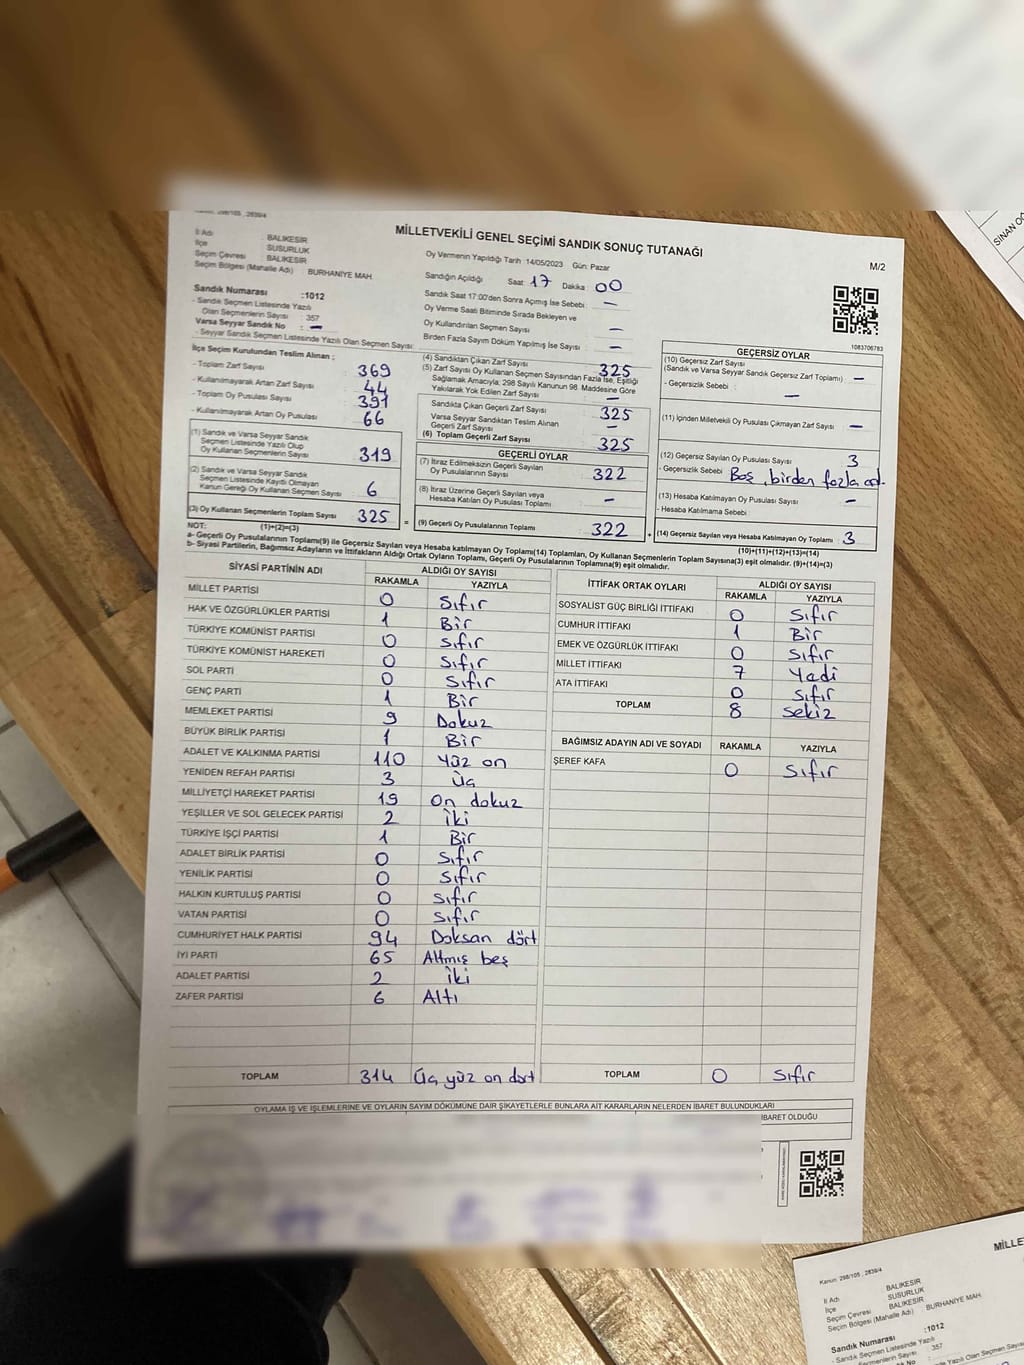 Kanun: 298/105 , 2839/4
MİLLETVEKİLİ GENEL SEÇİMİ SANDIK SONUÇ TUTANAĞI
M/2
İl Adı : BALIKESİR
İlçe : SUSURLUK
Seçim Çevresi : BALIKESİR
Seçim Bölgesi (Mahalle Adı) : BURHANİYE MAH.
Sandık Numarası :1012
- Sandık Seçmen Listesinde Yazılı
Olan Seçmenlerin Sayısı : 357
Varsa Seyyar Sandık No : –
- Seyyar Sandık Seçmen Listesinde Yazılı Olan Seçmen Sayısı:
Oy Vermenin Yapıldığı Tarih :14/05/2023 Gün: Pazar
Sandığın Açıldığı Saat 17 Dakika 00
Sandık Saat 17:00'den Sonra Açımış İse Sebebi : –
Oy Verme Saati Bitiminde Sırada Bekleyen ve
Oy Kullandırılan Seçmen Sayısı : –
Birden Fazla Sayım Döküm Yapılmış İse Sayısı : –
1083706783
İlçe Seçim Kurulundan Teslim Alınan ;
- Toplam Zarf Sayısı : 369
- Kullanılmayarak Artan Zarf Sayısı : 44
- Toplam Oy Pusulası Sayısı : 391
- Kullanılmayarak Artan Oy Pusulası : 66
(1) Sandık ve Varsa Seyyar Sandık
Seçmen Listesinde Yazılı Olup
Oy Kullanan Seçmenlerin Sayısı : 319
(2) Sandık ve Varsa Seyyar Sandık
Seçmen Listesinde Kayıtlı Olmayan
Kanun Gereği Oy Kullanan Seçmen Sayısı : 6
(3) Oy Kullanan Seçmenlerin Toplam Sayısı : 325
(1)+(2)=(3)
(4) Sandıktan Çıkan Zarf Sayısı : 325
(5) Zarf Sayısı Oy Kullanan Seçmen Sayısından Fazla İse, Eşitliği
Sağlamak Amacıyla; 298 Sayılı Kanunun 98. Maddesine Göre
Yakılarak Yok Edilen Zarf Sayısı : –
Sandıkta Çıkan Geçerli Zarf Sayısı : 325
Varsa Seyyar Sandıktan Teslim Alınan
Geçerli Zarf Sayısı : –
(6) Toplam Geçerli Zarf Sayısı : 325
GEÇERLİ OYLAR
(7) İtiraz Edilmeksizin Geçerli Sayılan
Oy Pusulalarının Sayısı : 322
(8) İtiraz Üzerine Geçerli Sayılan veya
Hesaba Katılan Oy Pusulası Toplamı : –
= (9) Geçerli Oy Pusulalarının Toplamı : 322 +
GEÇERSİZ OYLAR
(10) Geçersiz Zarf Sayısı
(Sandık ve Varsa Seyyar Sandık Geçersiz Zarf Toplamı) : –
- Geçersizlik Sebebi : –
(11) İçinden Milletvekili Oy Pusulası Çıkmayan Zarf Sayısı : –
(12) Geçersiz Sayılan Oy Pusulası Sayısı : 3
- Geçersizlik Sebebi : Boş, birden fazla ad.
(13) Hesaba Katılmayan Oy Pusulası Sayısı : –
- Hesaba Katılmama Sebebi :
(14) Geçersiz Sayılan veya Hesaba Katılmayan Oy Toplamı : 3
(10)+(11)+(12)+(13)=(14)
NOT:
a- Geçerli Oy Pusulasının Toplamı(9) ile Geçersiz Sayılan veya Hesaba katılmayan Oy Toplamı(14) Toplamları, Oy Kullanan Seçmenlerin Toplam Sayısına(3) eşit olmalıdır. (9)+(14)=(3)
b- Siyasi Partilerin, Bağımsız Adayların ve İttifakların Aldığı Ortak Oyların Toplamı, Geçerli Oy Pusulalarının Toplamına(9) eşit olmalıdır.
SİYASİ PARTİNİN ADI ALDIĞI OY SAYISI
RAKAMLA YAZIYLA
MİLLET PARTİSİ 0 Sıfır
HAK VE ÖZGÜRLÜKLER PARTİSİ 1 Bir
TÜRKİYE KOMÜNİST PARTİSİ 0 Sıfır
TÜRKİYE KOMÜNİST HAREKETİ 0 Sıfır
SOL PARTİ 0 Sıfır
GENÇ PARTİ 1 Bir
MEMLEKET PARTİSİ 9 Dokuz
BÜYÜK BİRLİK PARTİSİ 1 Bir
ADALET VE KALKINMA PARTİSİ 110 Yüz on
YENİDEN REFAH PARTİSİ 3 Üç
MİLLİYETÇİ HAREKET PARTİSİ 19 On dokuz
YEŞİLLER VE SOL GELECEK PARTİSİ 2 İki
TÜRKİYE İŞÇİ PARTİSİ 1 Bir
ADALET BİRLİK PARTİSİ 0 Sıfır
YENİLİK PARTİSİ 0 Sıfır
HALKIN KURTULUŞ PARTİSİ 0 Sıfır
VATAN PARTİSİ 0 Sıfır
CUMHURİYET HALK PARTİSİ 94 Doksan dört
İYİ PARTİ 65 Altmış beş
ADALET PARTİSİ 2 İki
ZAFER PARTİSİ 6 Altı
TOPLAM 314 Üç yüz on dört
İTTİFAK ORTAK OYLARI ALDIĞI OY SAYISI
RAKAMLA YAZIYLA
SOSYALİST GÜÇ BİRLİĞİ İTTİFAKI 0 Sıfır
CUMHUR İTTİFAKI 1 Bir
EMEK VE ÖZGÜRLÜK İTTİFAKI 0 Sıfır
MİLLET İTTİFAKI 7 Yedi
ATA İTTİFAKI 0 Sıfır
TOPLAM 8 Sekiz
BAĞIMSIZ ADAYIN ADI VE SOYADI RAKAMLA YAZIYLA
ŞEREF KAFA 0 Sıfır
TOPLAM 0 Sıfır
OYLAMA İŞ VE İŞLEMLERİNE VE OYLARIN SAYIM DÖKÜMÜNE DAİR ŞİKAYETLERLE BUNLARA AİT KARARLARIN NELERDEN İBARET BULUNDUKLARI
İBARET OLDUĞU
SİNAN
MİLLET
Kanun: 298/105 , 2839/4
İl Adı : BALIKESİR
İlçe : SUSURLUK
Seçim Çevresi : BALIKESİR
Seçim Bölgesi (Mahalle Adı) : BURHANİYE MAH.
Sandık Numarası :1012
- Sandık Seçmen Listesinde Yazılı
Seçmenlerin Sayısı : 357